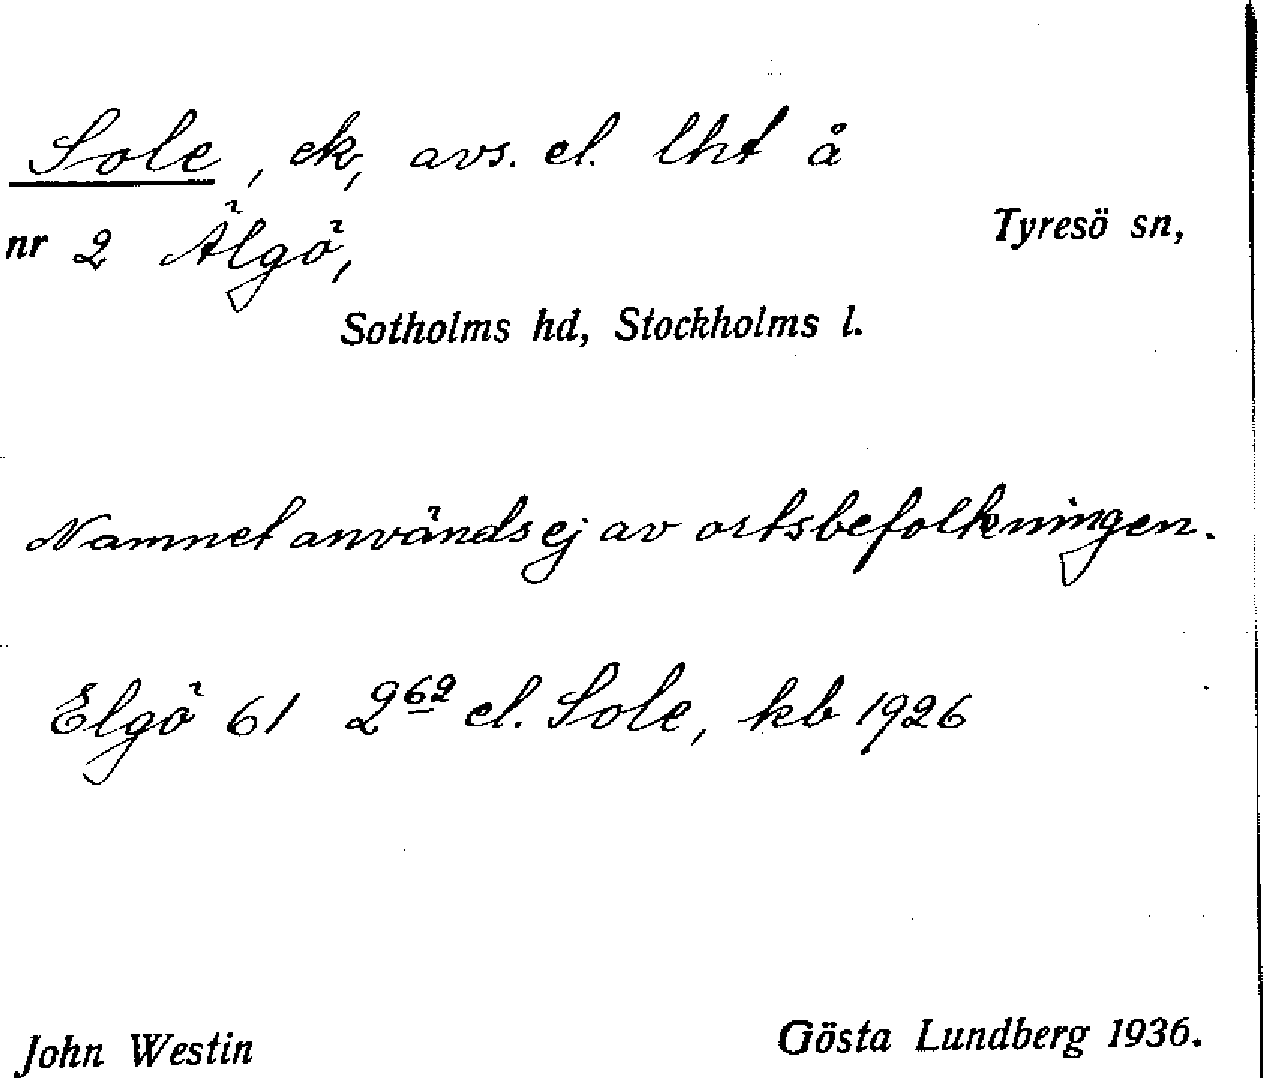 Sole, ek, avs. el. lht å
nr 2 Älgö, Tyresö sn,
Sotholms hd, Stockholms l.
Namnet används ej av ortsbefolkningen.
Elgö 61 2⁶² el. Sole, kb 1926
John Westin Gösta Lundberg 1936.